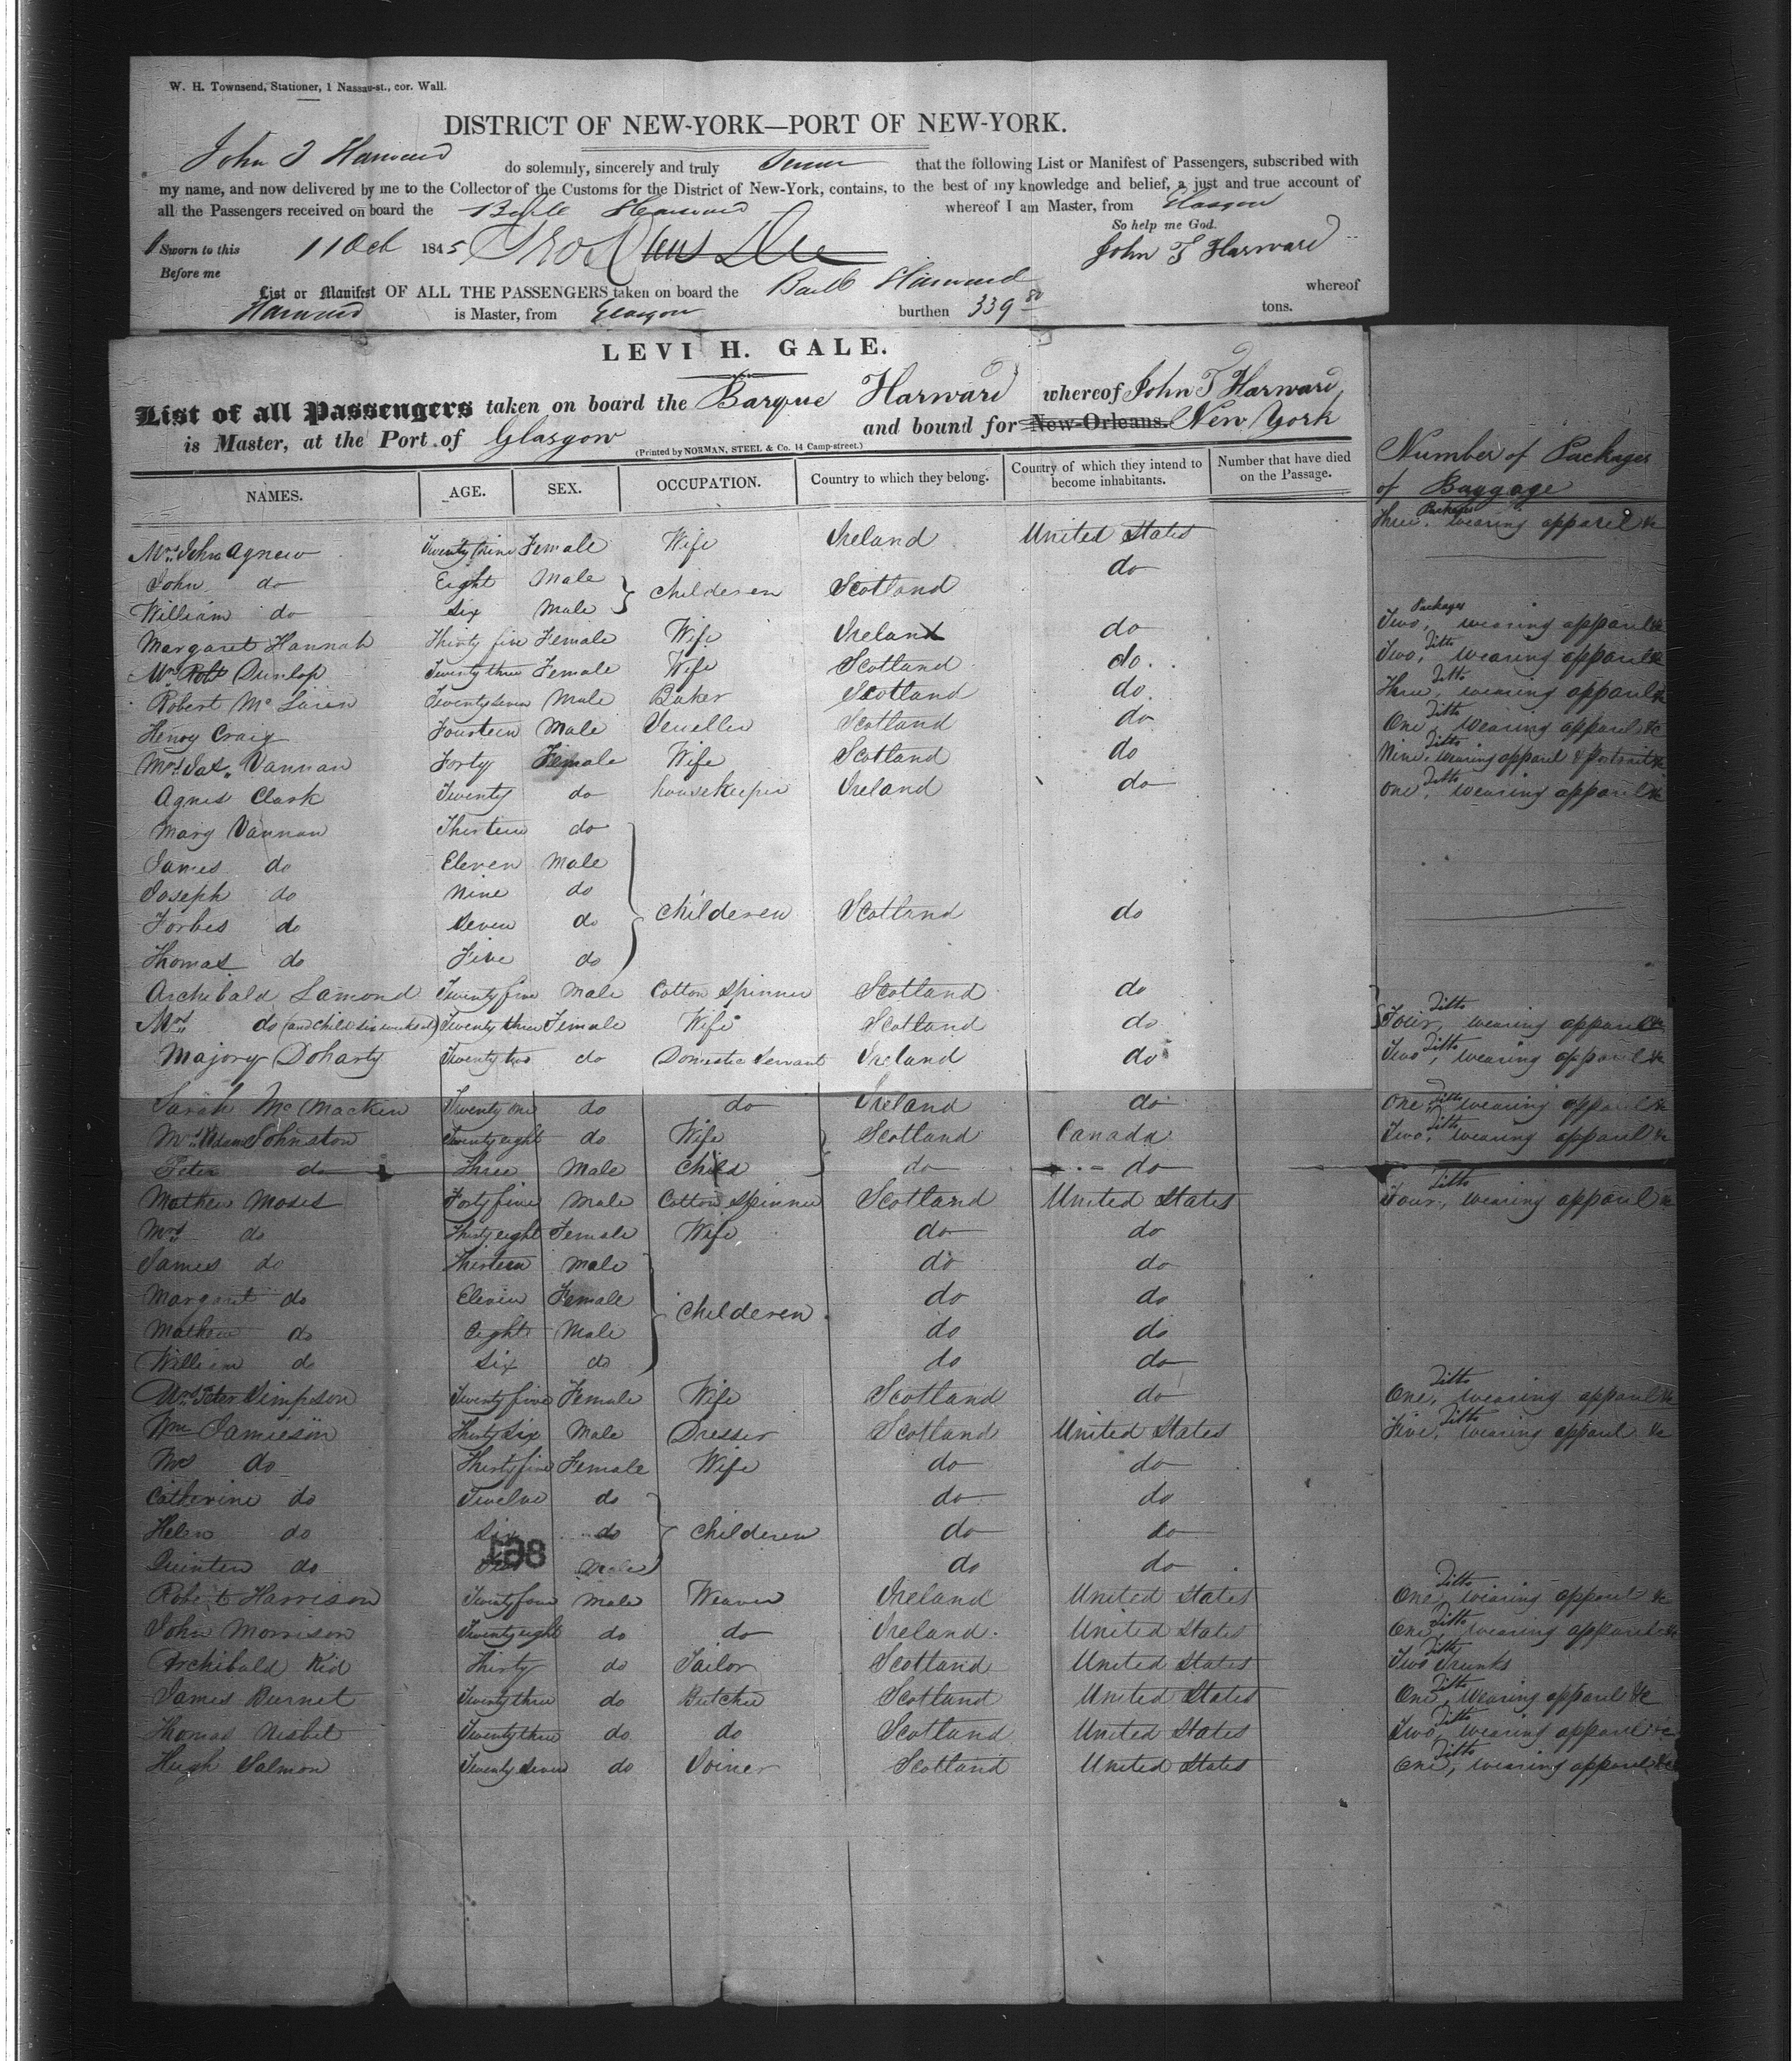 W. H. Townsend, Stationer, 1 Nassau-st., cor. Wall.
DISTRICT OF NEW-YORK—PORT OF NEW-YORK.
John T Harward do solemnly, sincerely and truly Swear that the following List or Manifest of Passengers, subscribed with
my name, and now delivered by me to the Collector of the Customs for the District of New-York, contains, to the best of my knowledge and belief, a just and true account of
all the Passengers received on board the Barke Harward whereof I am Master, from Glasgow
So help me God.
Sworn to this 11 Oct 1845 John T Harward
Before me
List or Manifest OF ALL THE PASSENGERS taken on board the Bark Harward whereof
Harward is Master, from Glasgow burthen 339 80 tons.
LEVI H. GALE.
List of all Passengers taken on board the Barque Harward whereof John T Harward,
is Master, at the Port of Glasgow and bound for New-Orleans. New York
(Printed by NORMAN, STEEL & Co. 14 Camp-street.)
NAMES. AGE. SEX. OCCUPATION. Country to which they belong. Country of which they intend to become inhabitants. Number that have died on the Passage. Number of Packages of Baggage
Mrs John Agnew Twenty nine Female Wife Ireland United States Three Packages wearing apparel &c
John do Eight Male Childeren Scotland do
William do Six Male
Margaret Hannah Thirty five Female Wife Ireland do Two, Packages wearing apparel &c
Mrs Robt Dunlop Twenty three Female Wife Scotland do Two, Ditto wearing apparel &c
Robert Mc Laren Twenty seven Male Baker Scotland do Three, Ditto wearing apparel &c
Henry Craig Fourteen Male Scotland do One Ditto wearing apparel &c
Mrs Jas. Vannan Forty Female Wife Scotland do Nine, Ditto wearing apparel & portrait &c
Agnes Clark Twenty do housekeeper Ireland do one, Ditto wearing apparel &c
Mary Vannan Thirteen do
James do Eleven Male
Joseph do Nine do
Forbes do Seven do Childeren Scotland do
Thomas do Five do
Archibald Lamond Twenty five Male Cotton Spinner Scotland do
Mrs do (and child six weeks old) Twenty three Female Wife Scotland do Four, Ditto wearing apparel &c
Majory Doharty Twenty two do Domestic Servant Ireland do Two, Ditto wearing apparel &c
Sarah Mc Macken Twenty one do do Ireland do One, Ditto wearing apparel &c
Mrs Johnston Twenty eight do Wife Scotland Canada Two, Ditto wearing apparel &c
Peter do Three Male Child do do
Mathew Moses Forty five Male Cotton Spinner Scotland United States Four, Ditto wearing apparel &c
Mrs do Thirty eight Female Wife do do
James do Thirteen Male do do
Margaret do Eleven Female Childeren do do
Mathew do Eight Male do do
William do Six do do do
Mrs Peter Simpson Twenty five Female Wife Scotland do One, Ditto wearing apparel &c
Wm Jamieson Thirty Six Male Dresser Scotland United States Five, Ditto wearing apparel &c
Mrs do Thirty five Female Wife do do
Catherine do Twelve do do do
Helen do Six do Childeren do do
Quinten do Male do do
Robert Harrison Twenty four Male Weaver Ireland United States One, Ditto wearing apparel &c
John Morrison Twenty eight do do Ireland. United States One, Ditto wearing apparel &c
Archibald Kid Thirty do Tailor Scotland United States Two Ditto Trunks
James Burnet Twenty three do Butcher Scotland United States One, Ditto Wearing apparel &c
Thomas Nisbet Twenty three do do Scotland United States Two Ditto wearing apparel &c
Hugh Salmon Twenty Seven do Joiner Scotland United States One, Ditto wearing apparel &c